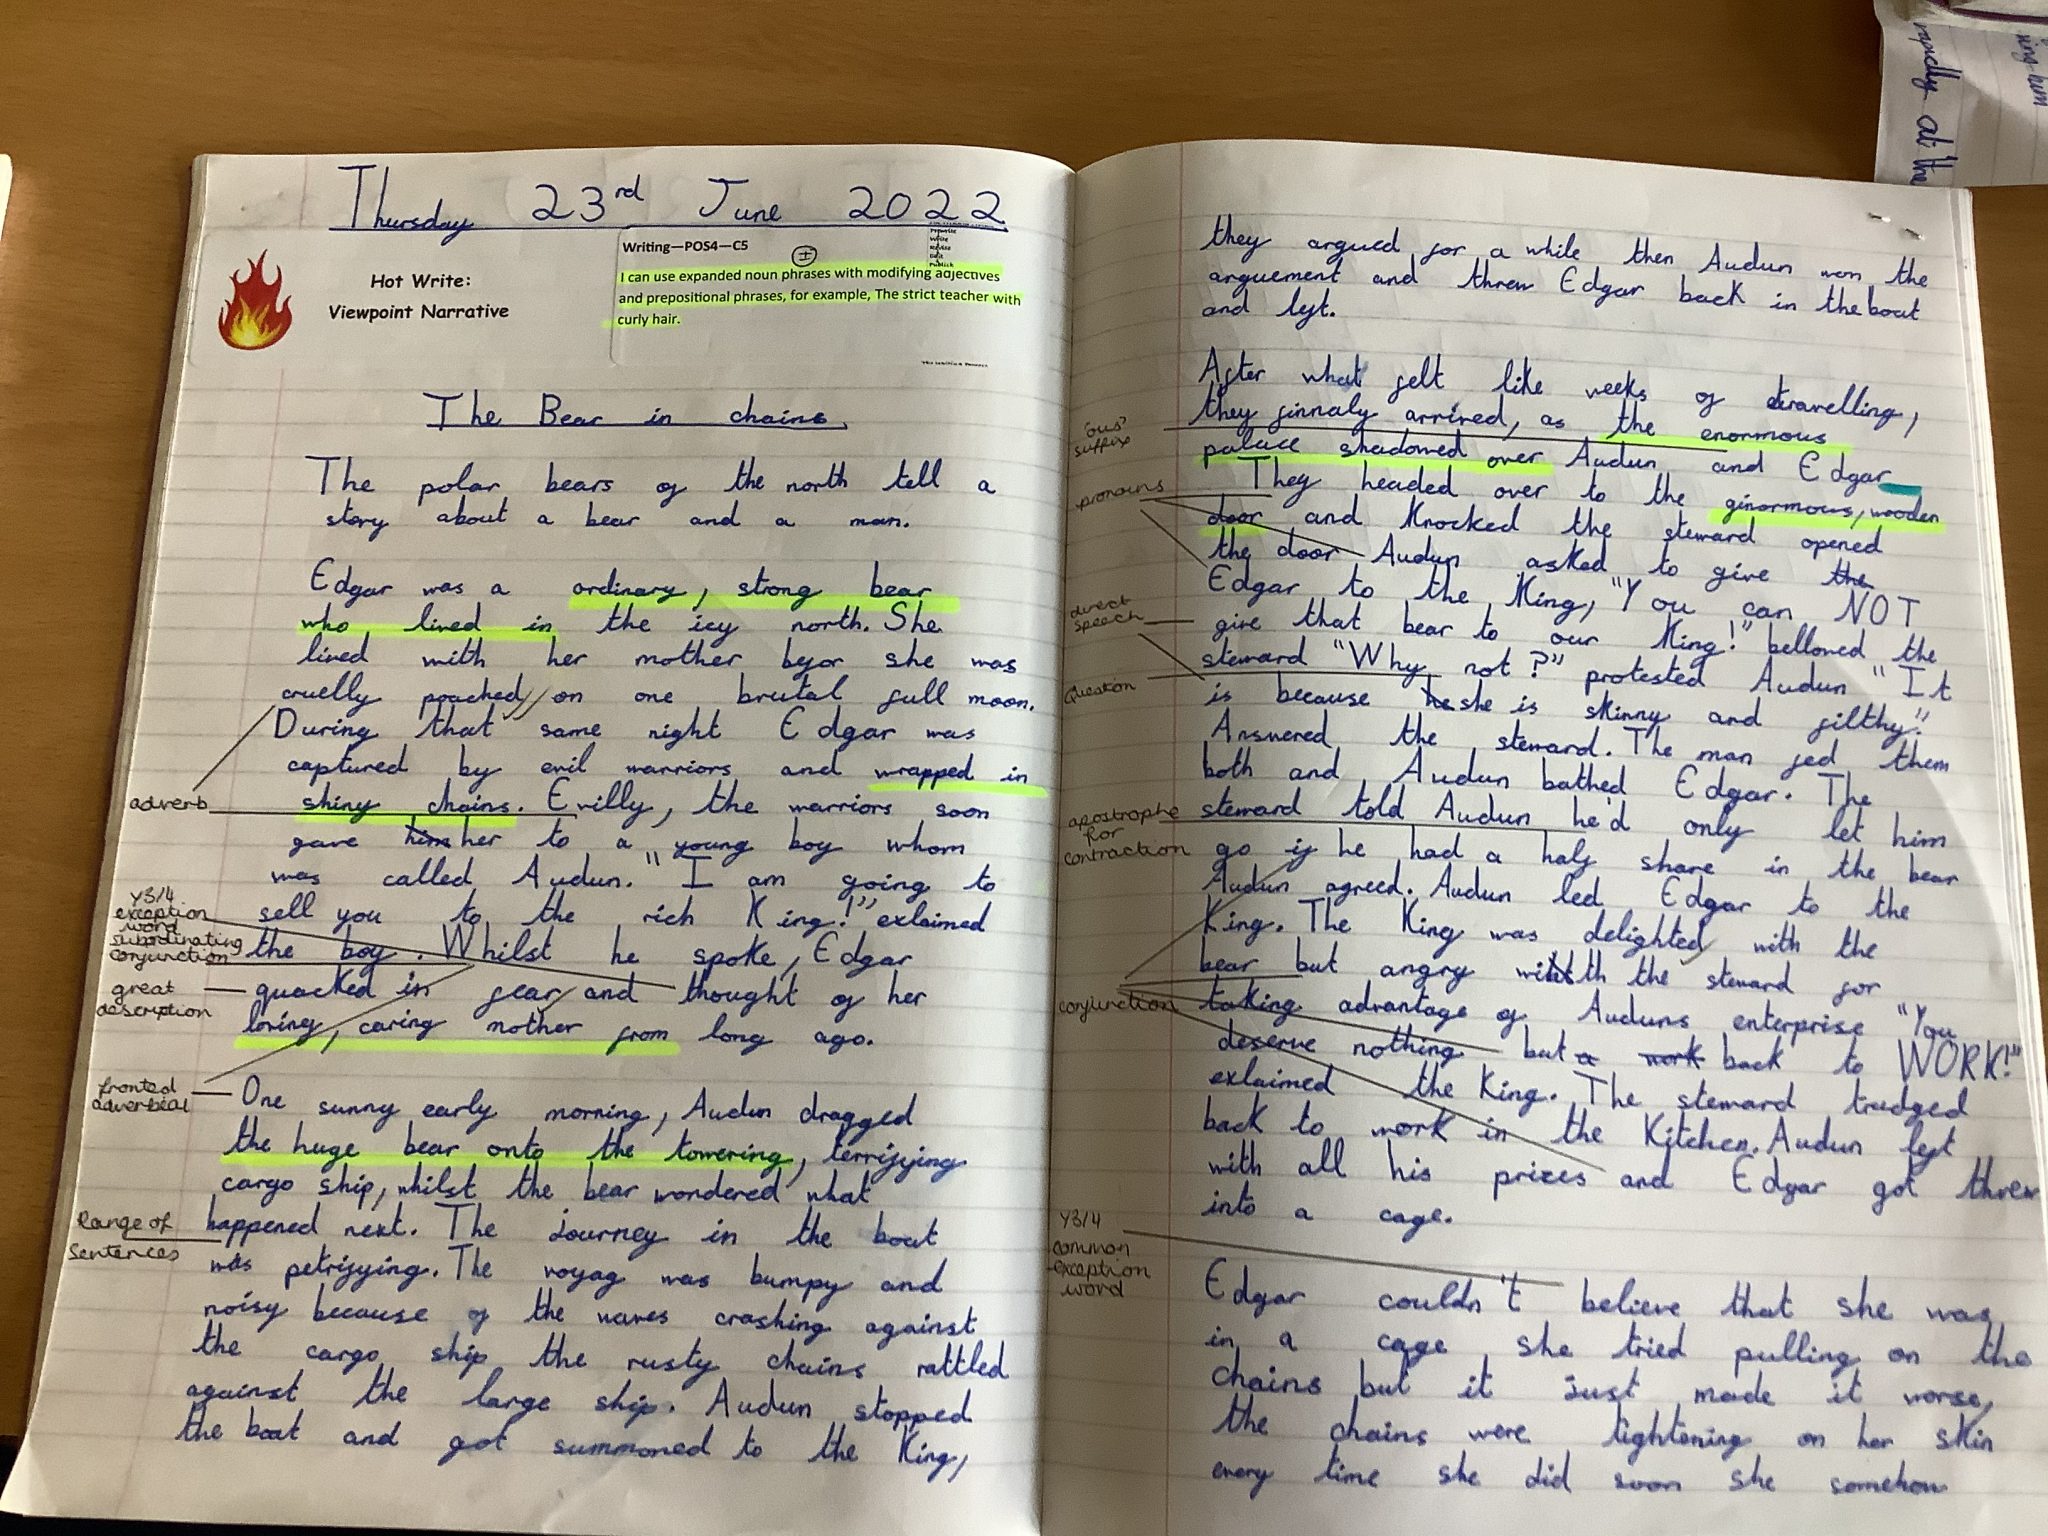 Thursday 23rd June 2022
Hot Write:
Viewpoint Narrative
Writing—POS4—C5
I can use expanded noun phrases with modifying adjectives
and prepositional phrases, for example, The strict teacher with
curly hair.
The Bear in chains
The polar bears of the north tell a
story about a bear and a man.
Edgar was a ordinary, strong bear
who lived in the icy north. She
lived with her mother befor she was
cruelly poached on one brutal full moon.
During that same night Edgar was
captured by evil warriors and wrapped in
shiny chains. Evilly, the warriors soon
gave him her to a young boy whom
was called Audun. "I am going to
sell you to the rich King!" exlaimed
the boy. Whilst he spoke, Edgar
quacked in fear and thought of her
loving, caring mother from long ago.
One sunny early morning, Audun dragged
the huge bear onto the towering, terrifying
cargo ship, whilst the bear wondered what
happened next. The journey in the boat
was petrifying. The voyag was bumpy and
noisy because of the waves crashing against
the cargo ship the rusty chains rattled
against the large ship. Audun stopped
the boat and got summoned to the King,
adverb
Y3/4
exception
word
subordinating
conjunction
great
description
fronted
adverbial
Range of
sentences
they argued for a while then Audun won the
arguement and threw Edgar back in the boat
and left.
After what felt like weeks of travelling,
they finnaly arrived, as the enormous
palace shadowed over Audun and Edgar
They headed over to the ginormous, wooden
door and knocked the steward opened
the door Audun asked to give the
Edgar to the King, "You can NOT
give that bear to our King!" bellowed the
steward "Why not?" protested Audun "It
is because he she is skinny and filthy."
Answered the steward. The man fed them
both and Audun bathed Edgar. The
steward told Audun he'd only let him
go if he had a half share in the bear
Audun agreed. Audun led Edgar to the
King. The King was delighted with the
bear but angry with the steward for
taking advantage of Auduns enterprise "You
deserve nothing but a work back to WORK!"
exlaimed the King. The steward trudged
back to work in the Kitchen. Audun left
with all his prizes and Edgar got threw
into a cage.
Edgar couldn't believe that she was
in a cage she tried pulling on the
chains but it just made it worse,
the chains were tightening on her skin
every time she did soon she somehow
'ous'
suffix
pronouns
direct
speech
Question
apostrophe
for
contraction
conjunction
Y3/4
common
exception
word
rapidly at the